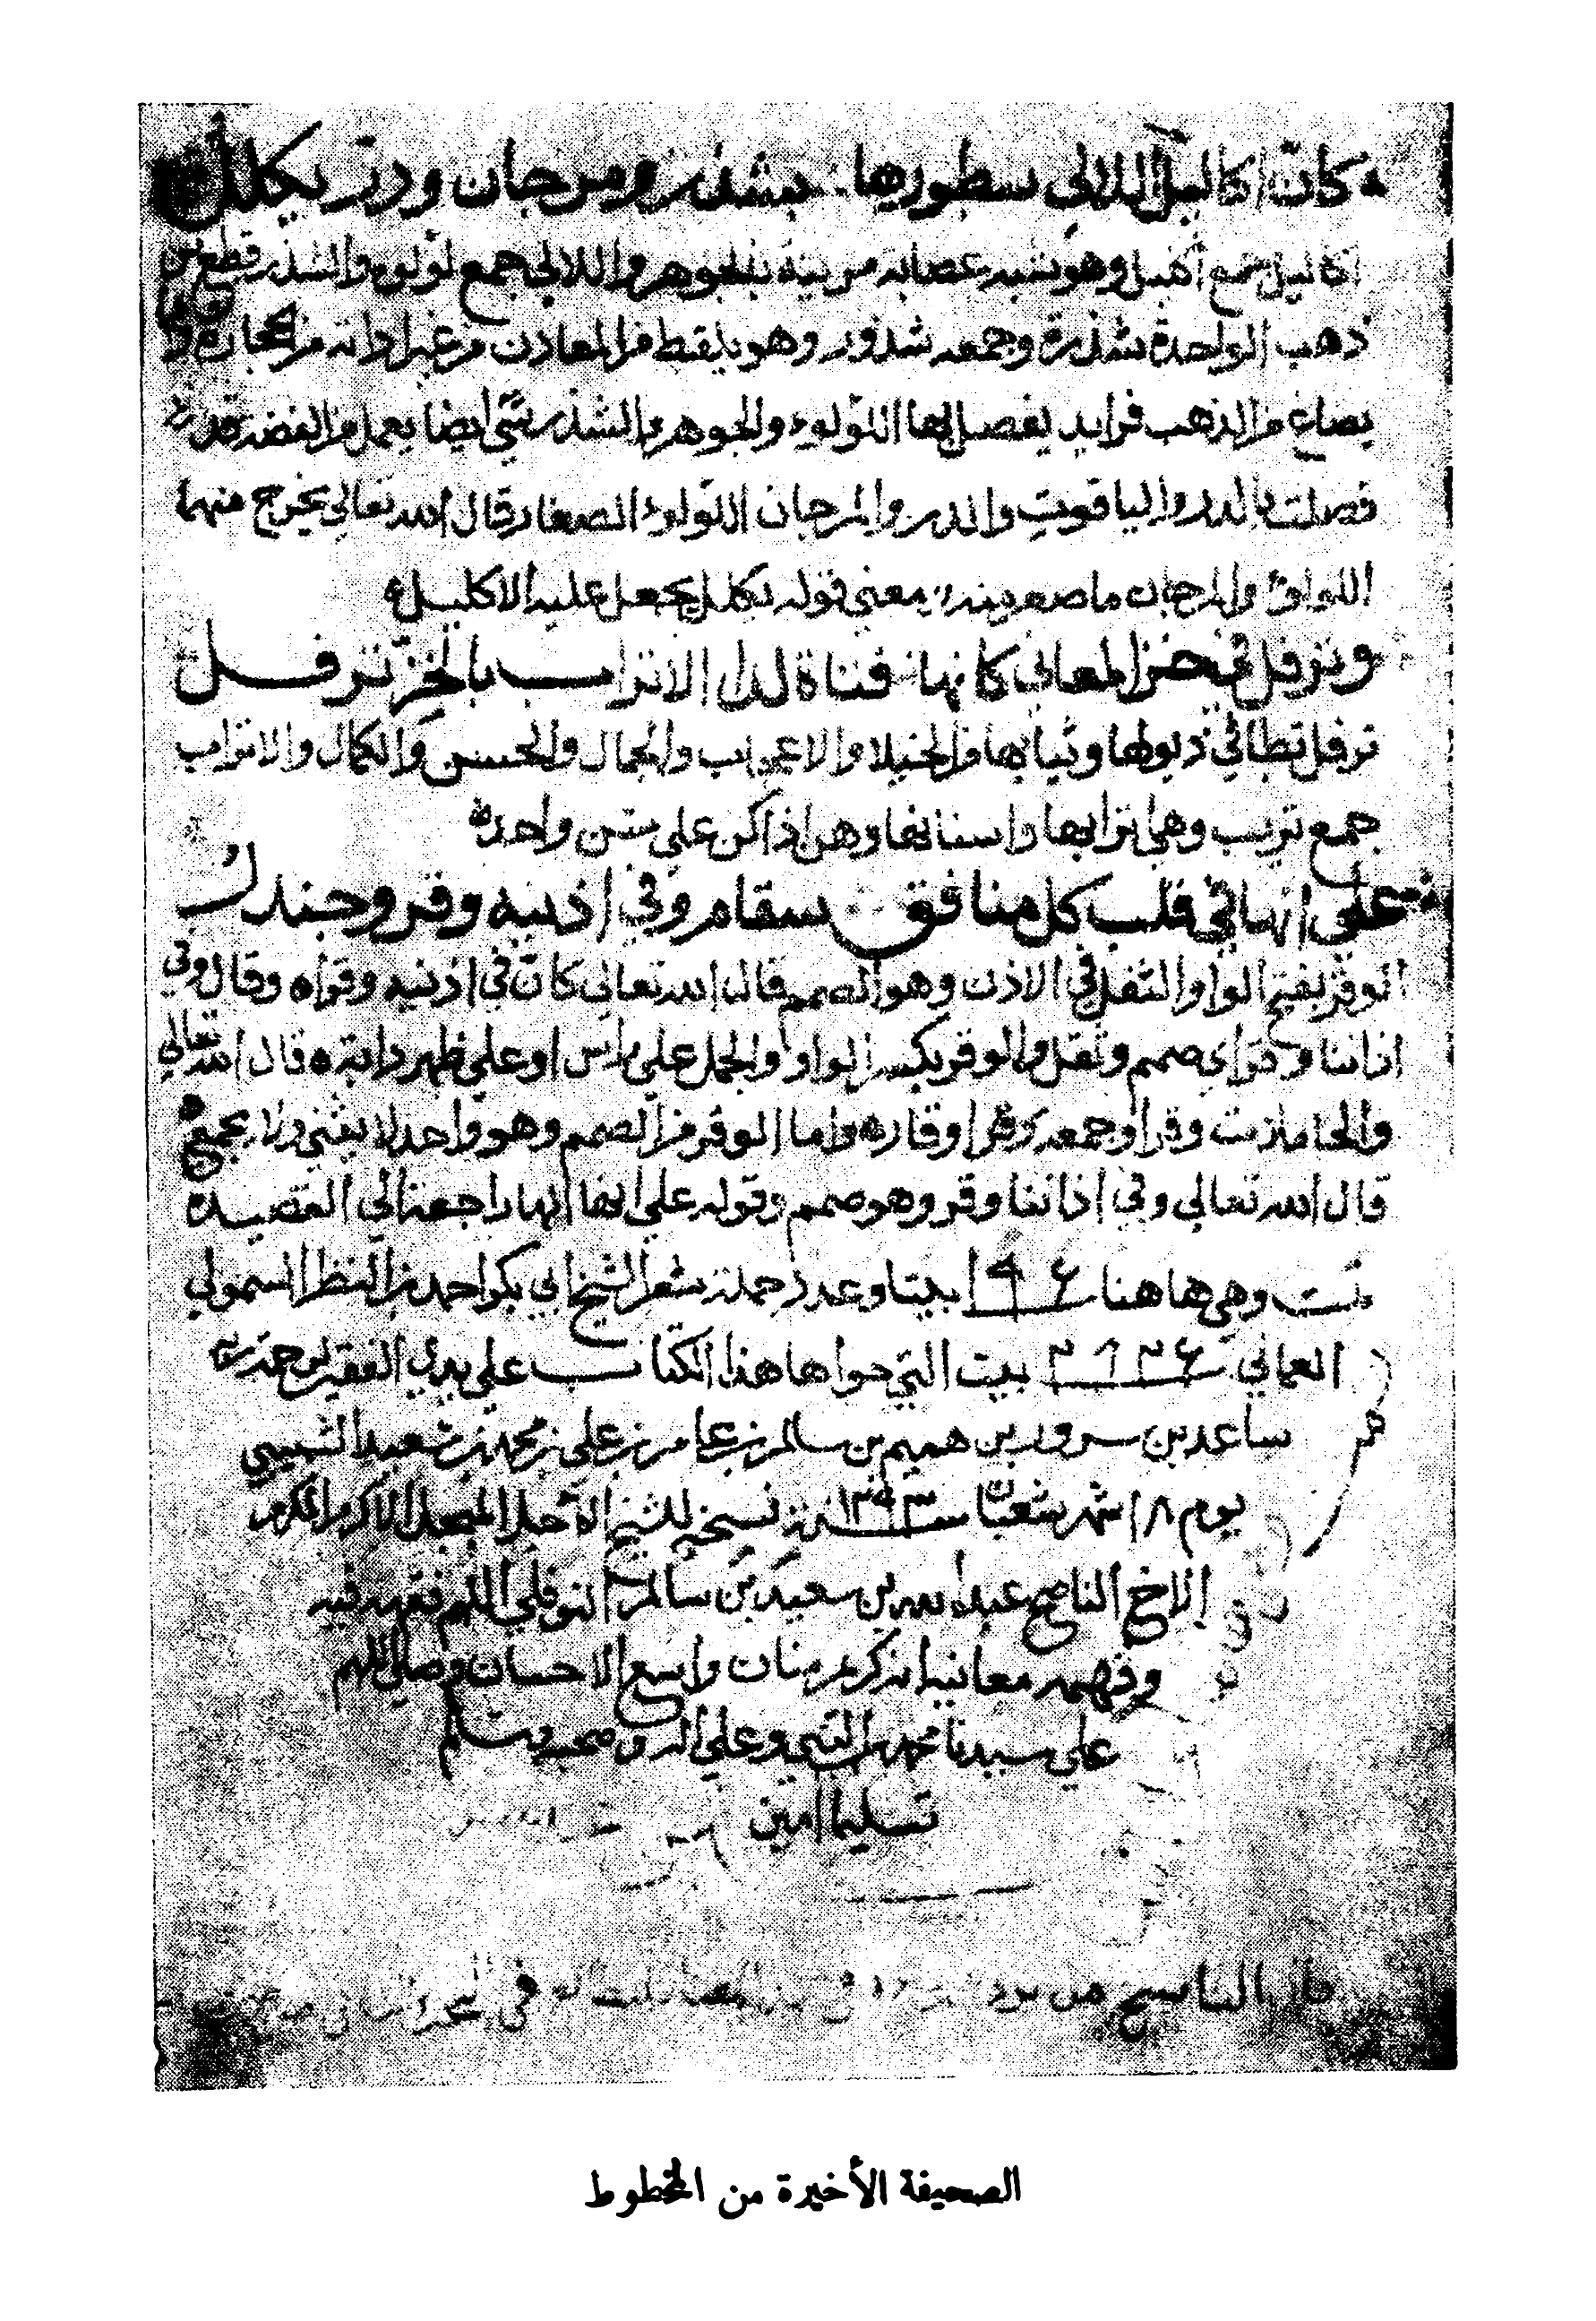 كأن أكاليل اللالي سطورها بشذر ومرجان ودر يكلل
أكاليل جمع أكليل وهو شبه عصابة مزينة بالجوهر واللالي جمع لولو والشذر قطع من
ذهب الواحدة شذرة وجمعه شذور وهو يلقط من المعادن من غير اذابة من الحجارة و
يصاغ من الذهب فرايد يفصل بها اللولوء والجوهر والشذر شي ايضا يعمل من الفضة
فصلت بالدر والياقوت والدر والمرجان اللولوء الصغار قال الله تعالى يخرج منهما
اللولوء والمرجان ما صغر منه معنى قوله يكلل يجعل عليه الاكليل
وترفل في خز المعاني كانها فتاة لدا الاتراب بالخز ترفل
ترفل تطا في ذيولها وثيابها من الخيلا والاعجاب والجمال والحسن والكمال والاتراب
جمع ترب وهي اترابها واسنانها وهن اذا كن على سن واحد
على انها في قلب كل منافق سقام وفي اذنيه وقر وجندل
الوقر بفتح الواو الثقل في الاذن وهو الصمم قال الله تعالى كان في اذنيه وقرا وقال وفي
اذاننا وقر اي صمم وثقل والوقر بكسر الواو الحمل على راس او على ظهر دابة قال الله تعالى
والحاملات وقرا وجمعه وقر اوقار واما الوقر من الصمم وهو واحد لا يثنى ولا يجمع
قال الله تعالى وفي اذاننا وقر وهو صمم وقوله على انها الها راجعة الى القصيدة
تمت وهي هاهنا بيتا وعدد جملة شعر الشيخ ابي بكر احمد بن النظر السمولي
العماني بيت التي حواها هذا الكتاب على يدي الفقير
ساعد بن سرور بن هميم بن سالم بن عامر بن علي بن محمد بن سعيد الشبيبي
يوم ١٨ شهر شعبان سنة ١٣٩٣ نسخه للشيخ الاجل المبجل الاكرم المكرم
الاخ الناصح عبدالله بن سعيد بن سالم النوفلي اللهم فقهه فيه
وفهمه معانيه انه كريم منان واسع الاحسان وصلى اللهم
على سيدنا محمد النبي وعلى اله وصحبه وسلم
تسليما امين
قال الناسخ من
الصحيفة الأخيرة من المخطوط